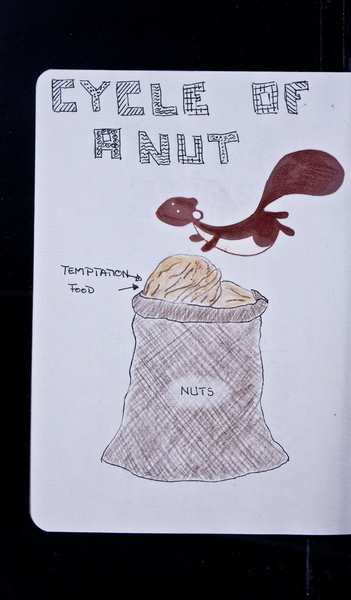 CYCLE OF
A NUT
TEMPTATION
FOOD
NUTS